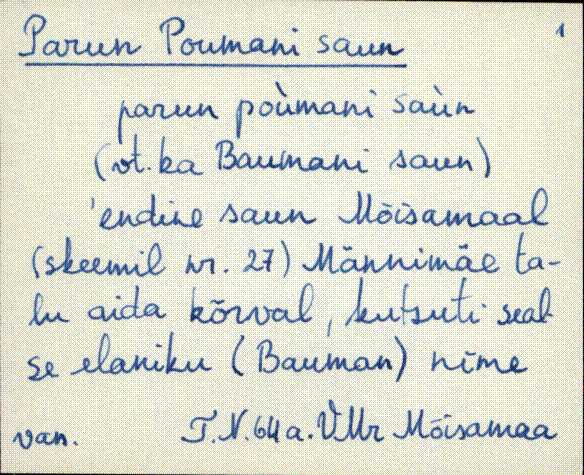 1
Parun Poumani saun
parun poùmani saùn
(vt. ka Baumani saun)
'endine saun Mõisamaal
(skeemil nr. 27) Männimäe ta-
lu aida kõrval, kutsuti seal-
se elaniku (Bauman) nime
van. T.N. 64 a. VMr Mõisamaa